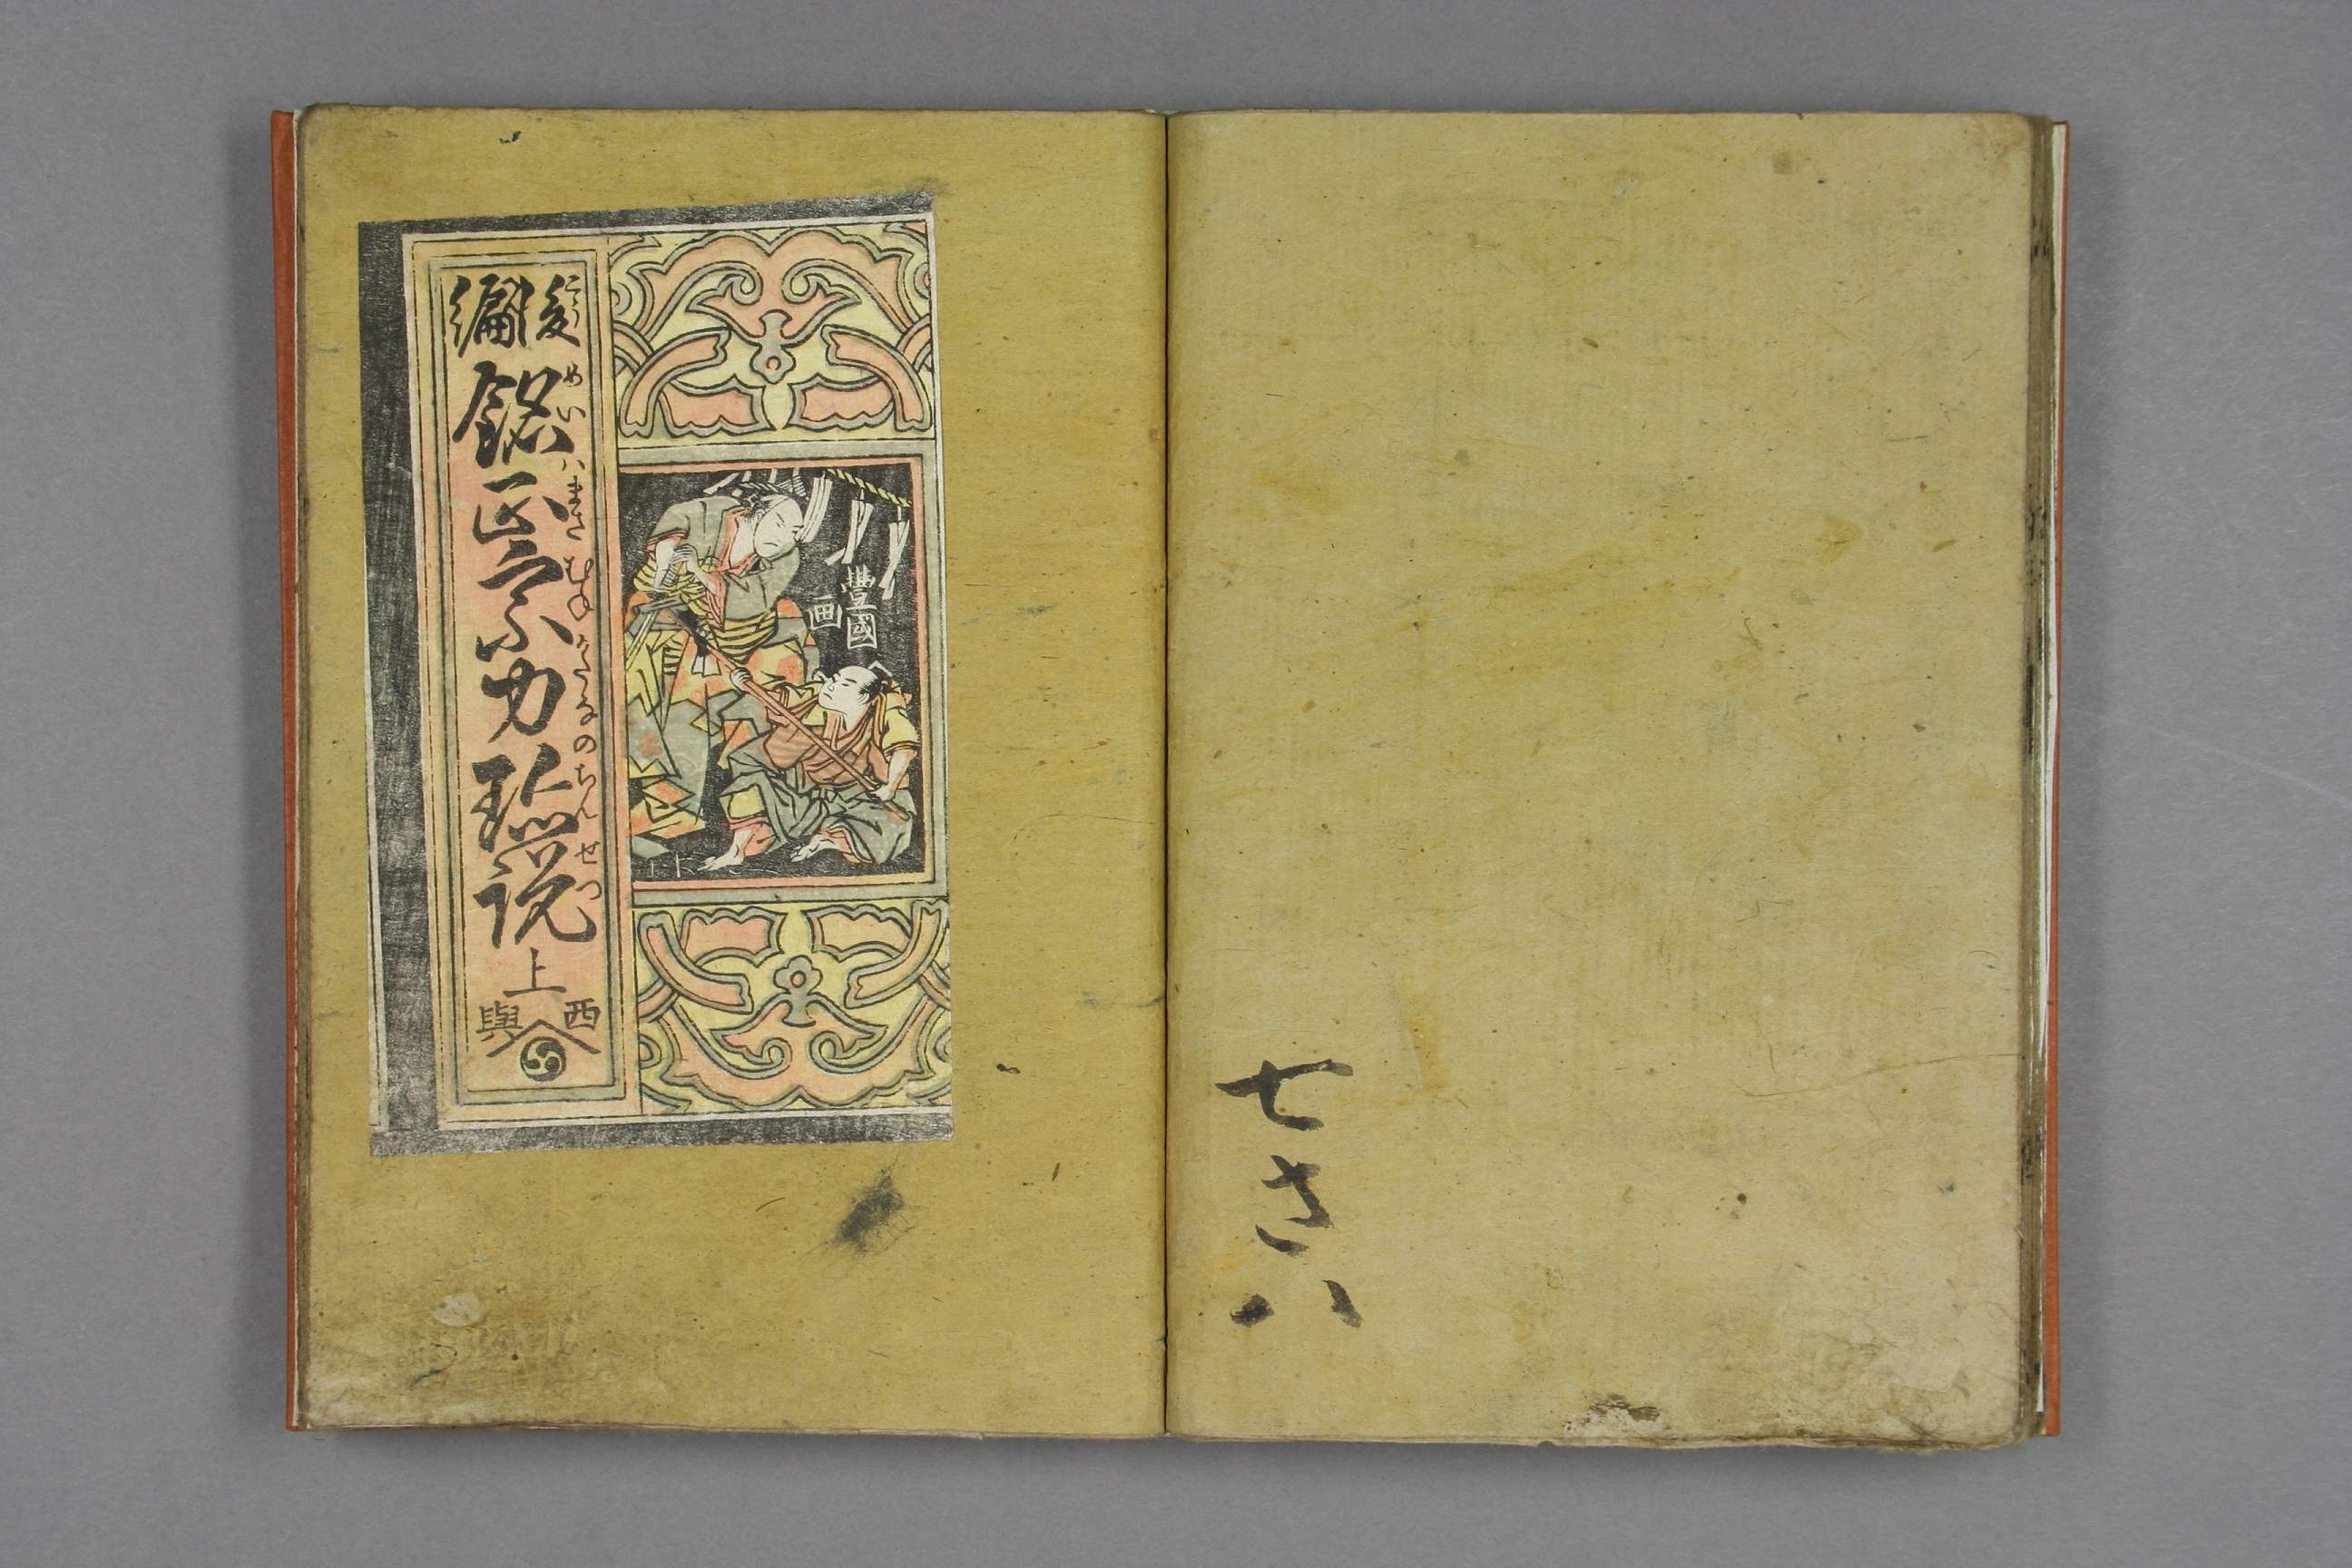 七さハ
豊國
画
後編
銘正宗刀珎説
上
こう
めいハまさむねかたなのちんせつ
西
與